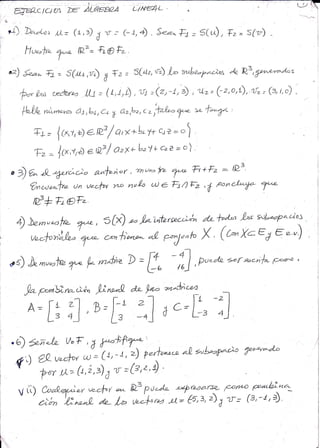 EJERCICIOS DE ÁLGEBRA LINEAL.
•1) Dados u = (1,3) y v = (-1,4). Sean F1 = S(u), F2 = S(v).
Muestre que R² = F1 ⊕ F2.
•2) Sean F1 = S(u1,v1) y F2 = S(u2,v2) los subespacios de R³, generados
por los vectores u1 = (1,1,1), v1 = (2,-1,3), u2 = (-2,0,1), v2 = (3,1,0).
Halle números a1, b1, c1 y a2, b2, c2 tales que se tenga:
F1 = {(x,y,z) ∈ R³ / a1x + b1y + c1z = 0}
F2 = {(x,y,z) ∈ R³ / a2x + b2y + c2z = 0}
•3) En el ejercicio anterior, muestre que F1 + F2 = R³
Encuentre un vector no nulo u ∈ F1 ∩ F2 y concluya que
R³ ≠ F1 ⊕ F2.
4) Demuestre que, S(X) es la intersección de todos los subespacios
vectoriales que contienen al conjunto X. (Con X ⊂ E y E e.v)
•5) Demuestre que la matriz D = [4 -4 -6 16], puede ser escrita como
la combinación lineal de las matrices
A = [1 2 3 4], B = [-1 2 3 -4] y C = [1 -2 -3 4]
•6) Señale V o F, y justifique.
F i) El vector w = (1,-1,2) pertenece al subespacio generado
por u = (1,2,3) y v = (3,2,1).
V ii) Cualquier vector en R² puede expresarse como combina
ción lineal de los vectores u = (5,3,2) y v = (3,-1,3).